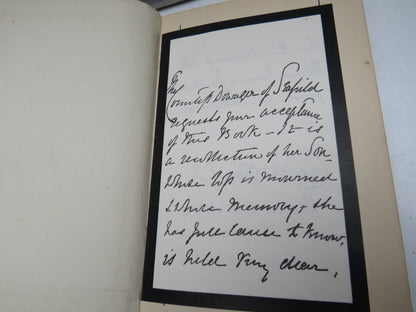 The
Countess Dowager of Seafield
requests your acceptance
of this Book – It is
a recollection of her Son
Whose loss is mourned
& whose Memory, she
has full cause to know,
is held very dear,